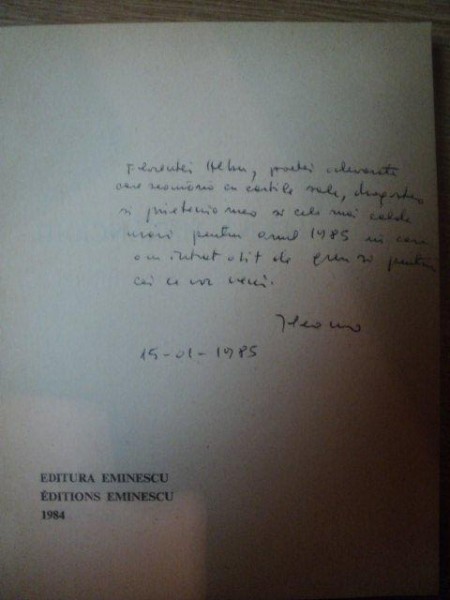 Florenței Albu, poetei adevărate
care seamănă cu cărțile sale, dragostea
și prietenia mea și cele mai calde
urări pentru anul 1985 în care
am intrat atît de greu și pentru
cei ce vor veni.
Ileana
15-01-1985
EDITURA EMINESCU
ÉDITIONS EMINESCU
1984